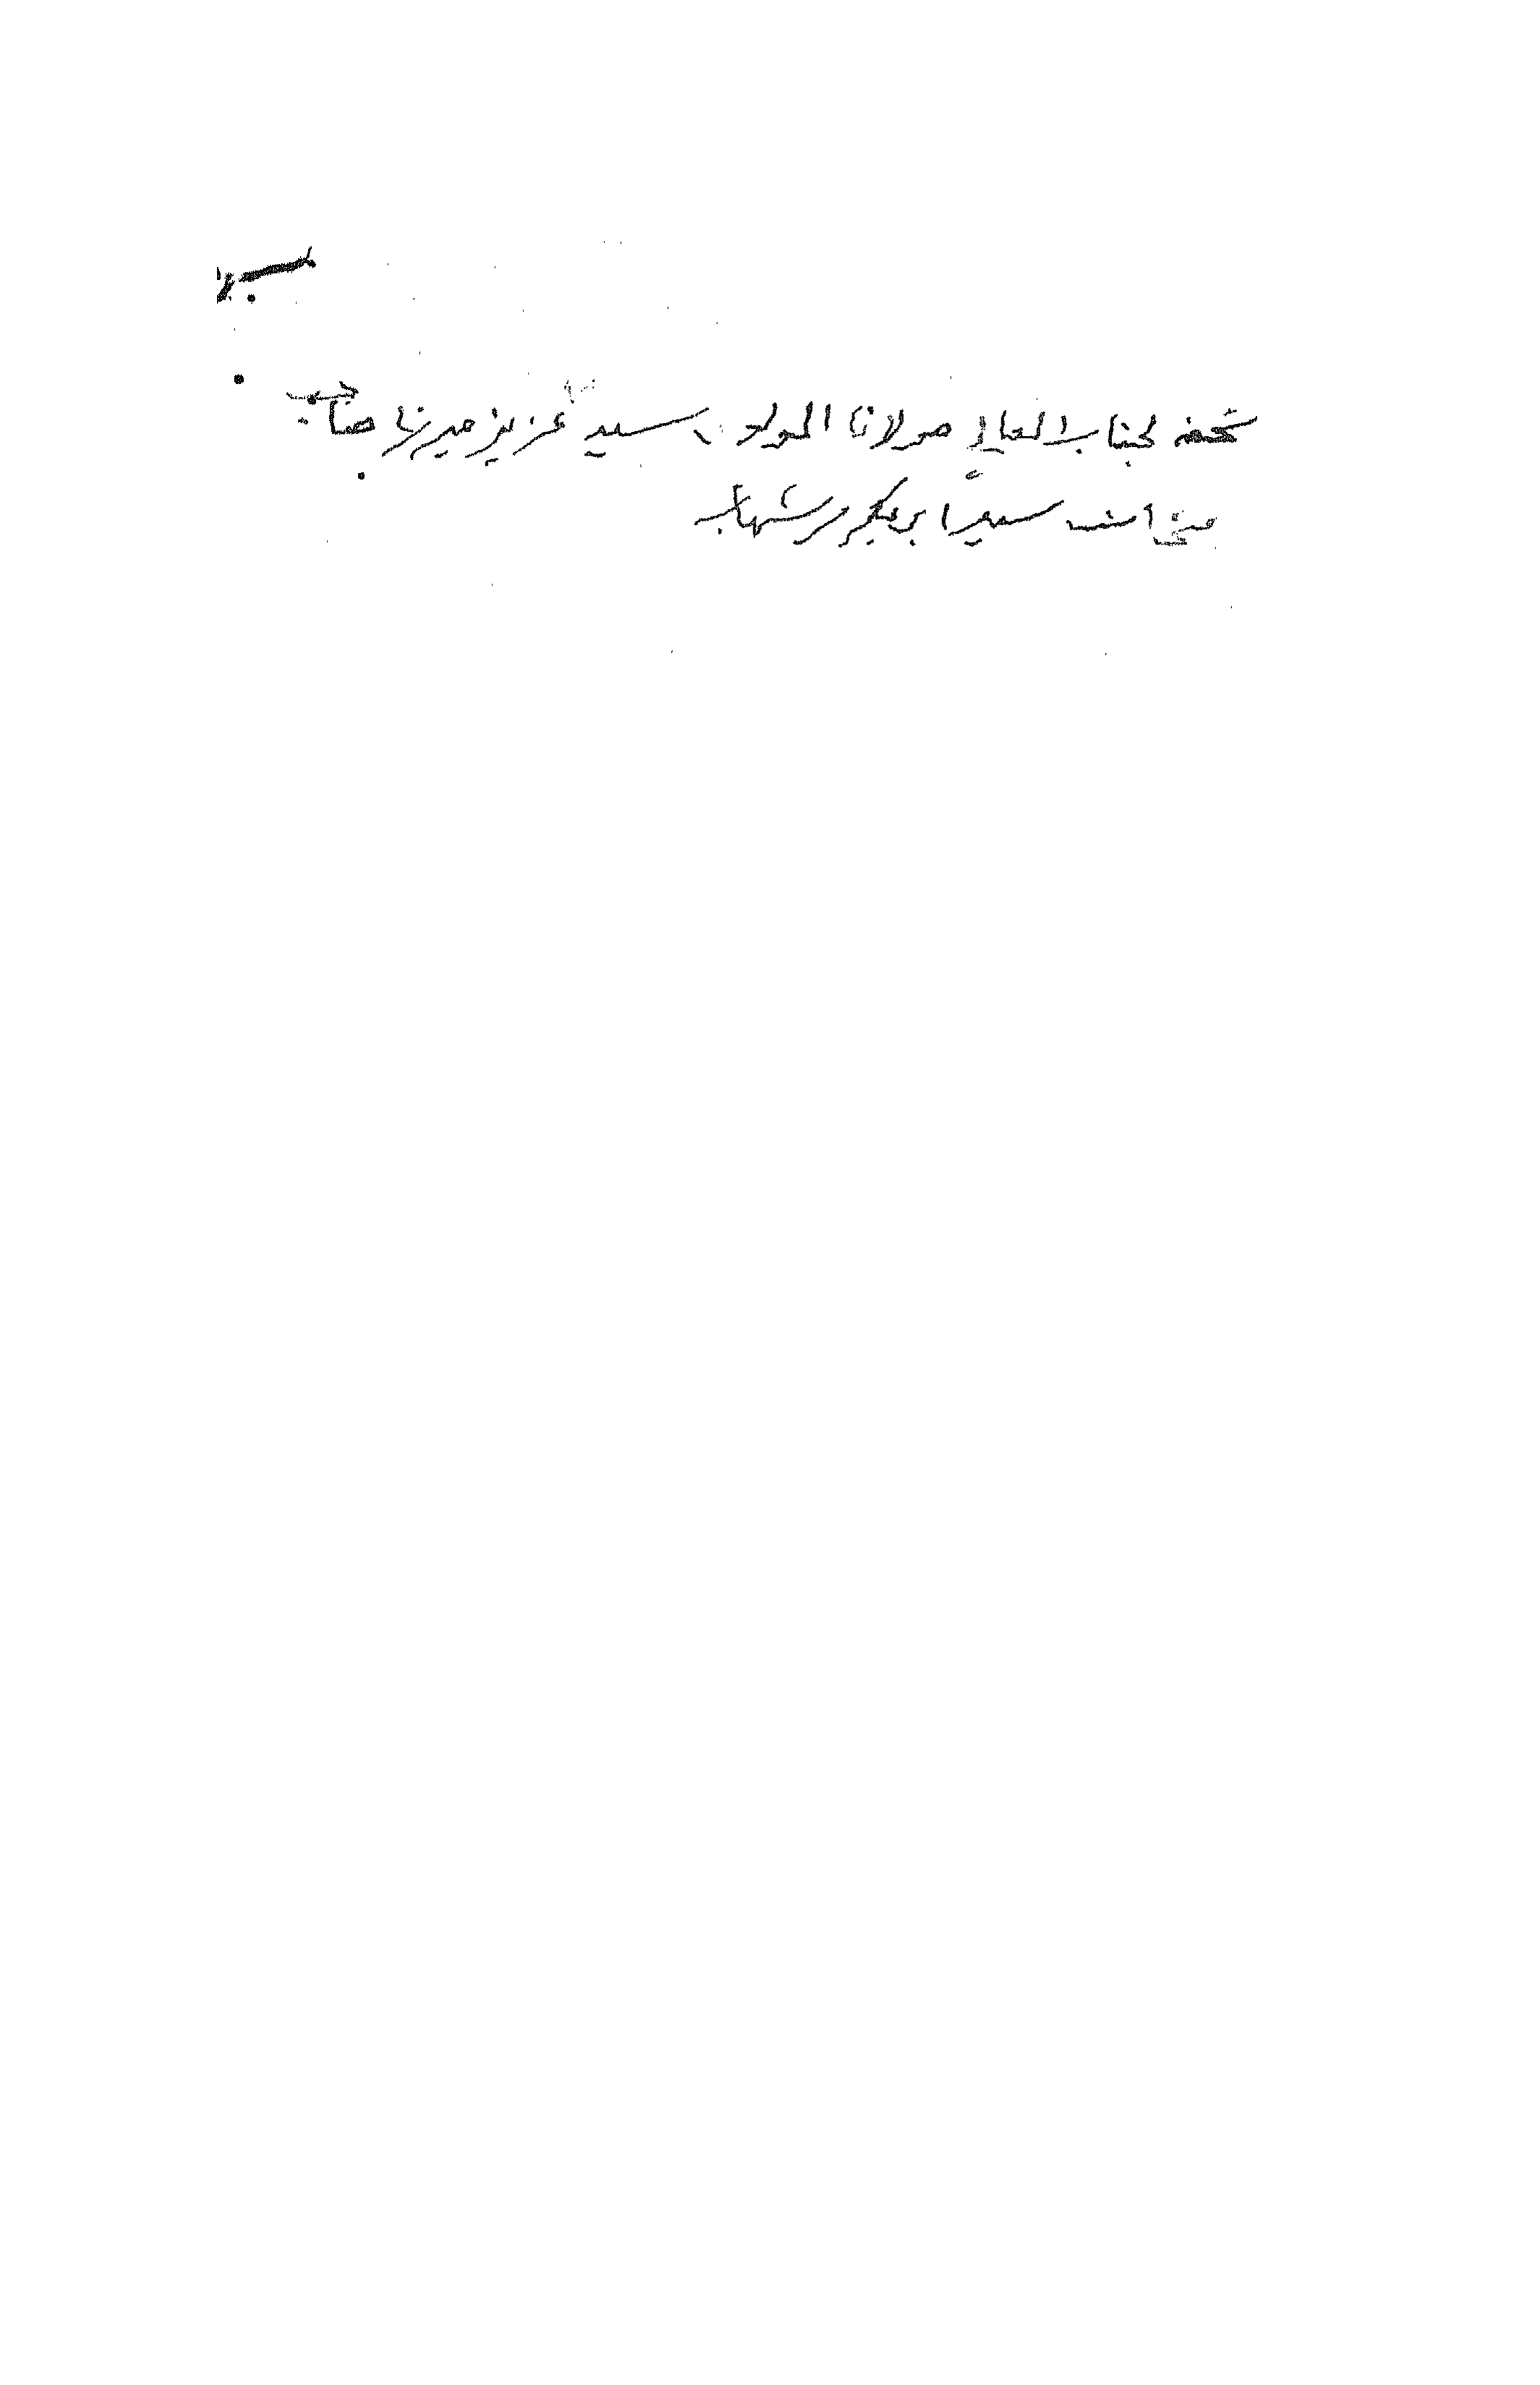 تحفه لجناب العالي مولانا المولو سيد عزيز ميرزا صاحب
سيد ابوبكر بن شهاب